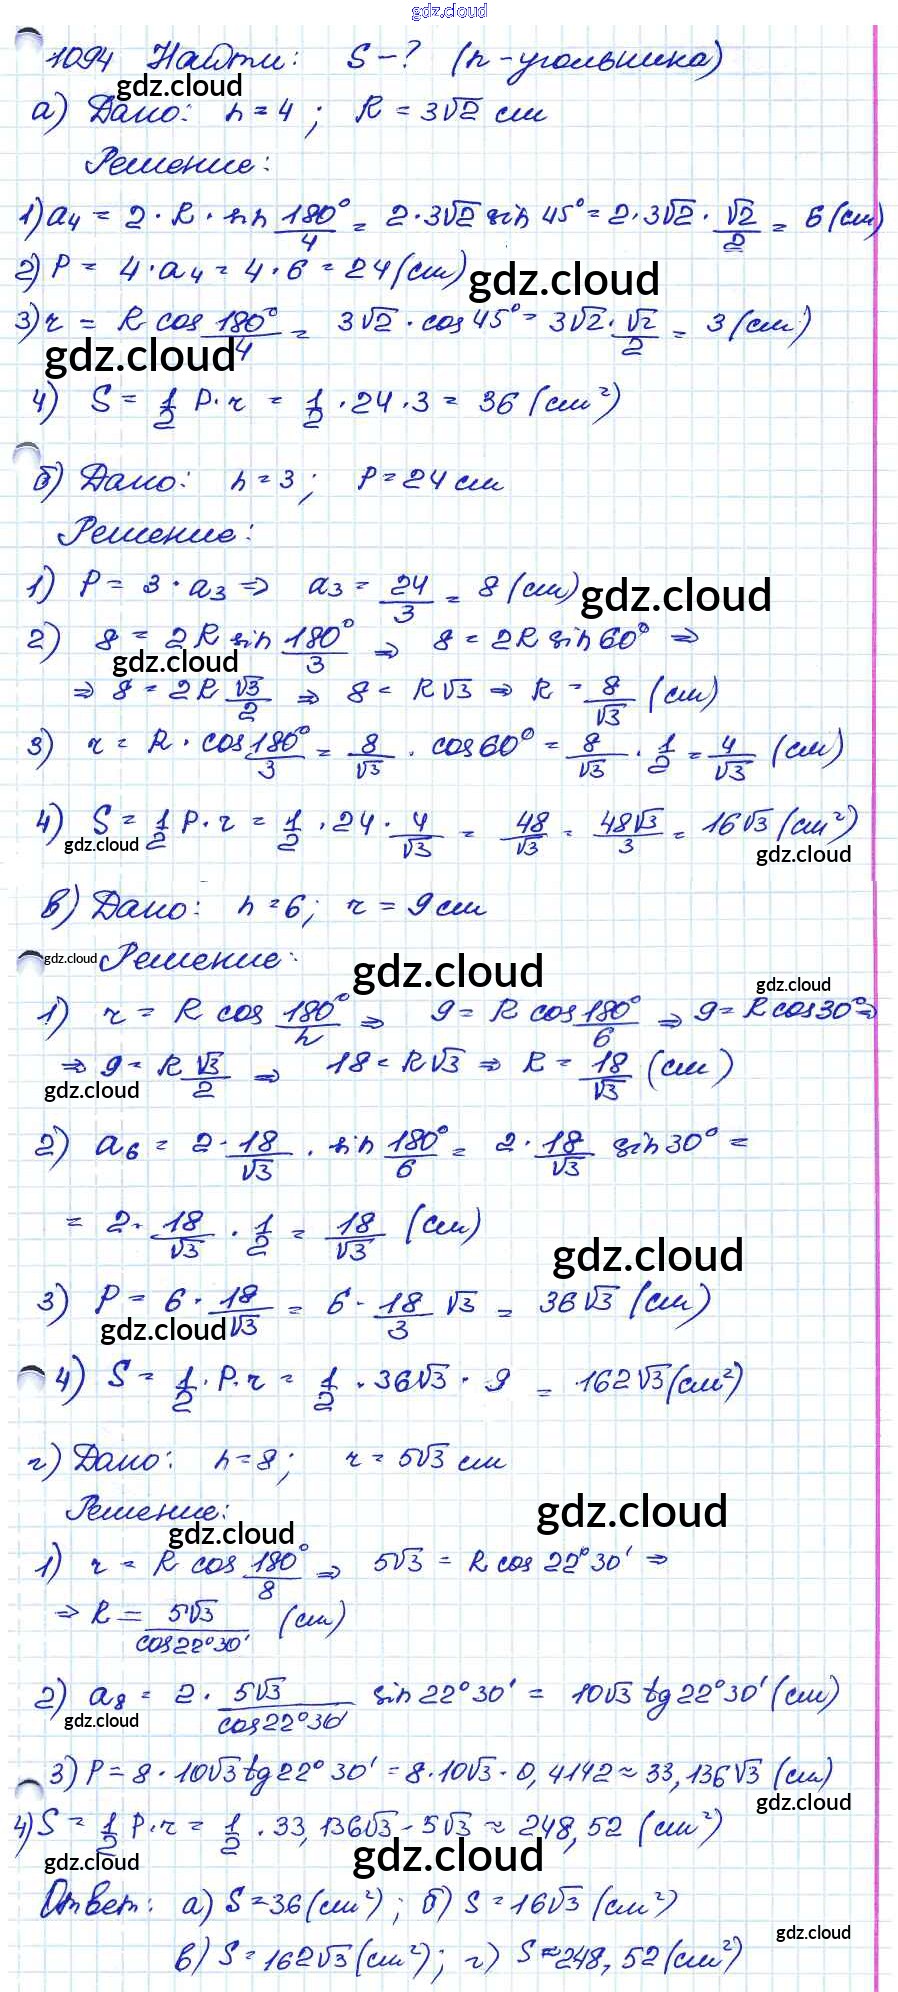 gdz.cloud
1094 Найти: S-? (n-угольника)
gdz.cloud
а) Дано: n=4; R=3√2 см
Решение:
1) a₄ = 2·R·sin 180°/4 = 2·3√2 sin 45° = 2·3√2·√2/2 = 6 (см)
2) P = 4·a₄ = 4·6 = 24 (см)
gdz.cloud
3) r = R cos 180°/4 = 3√2·cos 45° = 3√2·√2/2 = 3 (см)
gdz.cloud
4) S = 1/2 P·r = 1/2·24·3 = 36 (см²)
б) Дано: n=3; P=24 см
Решение:
1) P = 3·a₃ ⇒ a₃ = 24/3 = 8 (см)
gdz.cloud
2) 8 = 2R sin 180°/3 ⇒ 8 = 2R sin 60° ⇒
gdz.cloud
⇒ 8 = 2R √3/2 ⇒ 8 = R√3 ⇒ R = 8/√3 (см)
3) r = R·cos 180°/3 = 8/√3·cos 60° = 8/√3·1/2 = 4/√3 (см)
4) S = 1/2 P·r = 1/2·24·4/√3 = 48/√3 = 48√3/3 = 16√3 (см²)
gdz.cloud
gdz.cloud
в) Дано: n=6; r=9 см
gdz.cloud
Решение:
gdz.cloud
gdz.cloud
1) r = R cos 180°/n ⇒ 9 = R cos 180°/6 ⇒ 9 = R cos 30° ⇒
⇒ 9 = R √3/2 ⇒ 18 = R√3 ⇒ R = 18/√3 (см)
gdz.cloud
2) a₆ = 2·18/√3·sin 180°/6 = 2·18/√3 sin 30° =
= 2·18/√3·1/2 = 18/√3 (см)
gdz.cloud
3) P = 6·18/√3 = 6·18/3 √3 = 36√3 (см)
gdz.cloud
4) S = 1/2·P·r = 1/2·36√3·9 = 162√3 (см²)
г) Дано: n=8; r=5√3 см
Решение:
gdz.cloud
gdz.cloud
1) r = R cos 180°/8 ⇒ 5√3 = R cos 22°30' ⇒
⇒ R = 5√3/cos22°30' (см)
2) a₈ = 2·5√3/cos22°30' sin 22°30' = 10√3 tg 22°30' (см)
gdz.cloud
3) P = 8·10√3 tg 22°30' = 8·10√3·0,4142 ≈ 33,136√3 (см)
gdz.cloud
4) S = 1/2 P·r = 1/2·33,136√3·5√3 ≈ 248,52 (см²)
gdz.cloud
gdz.cloud
Ответ: а) S=36 (см²); б) S=16√3 (см²)
gdz.cloud
в) S=162√3 (см²); г) S≈248,52 (см²)